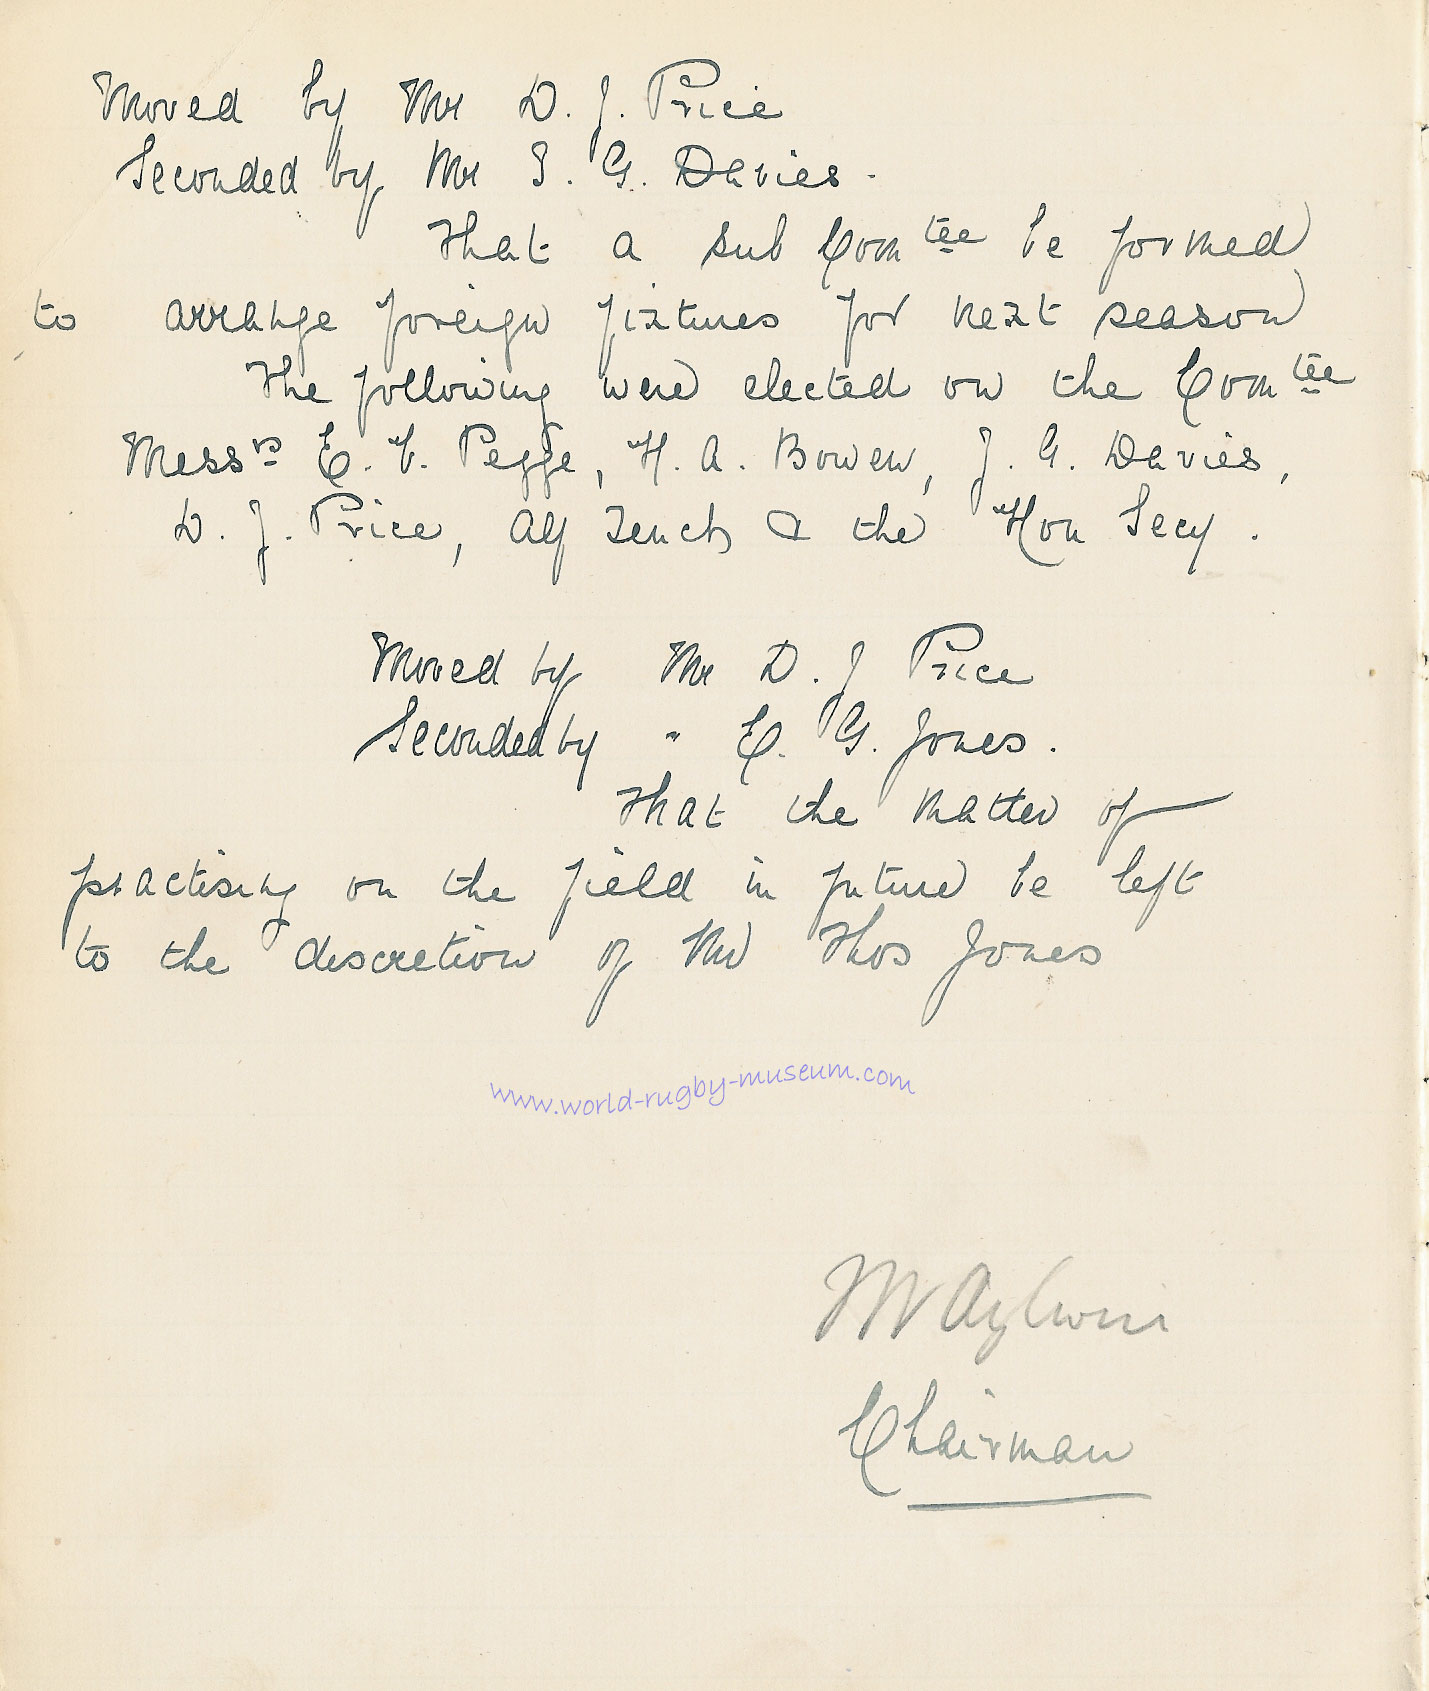 Moved by Mr D. J. Price
Seconded by Mr J. G. Davies.
That a sub Comtee be formed
to arrange foreign fixtures for next season
The following were elected on the Comtee
Messrs E. V. Pegge, H. A. Bowen, J. G. Davies,
D. J. Price, Alf Tench & the Hon Secy.
Moved by Mr D. J Price
Seconded by " E. G. Jones.
That the matter of
practising on the field in future be left
to the discretion of Mr Thos Jones
www.world-rugby-museum.com
Chairman